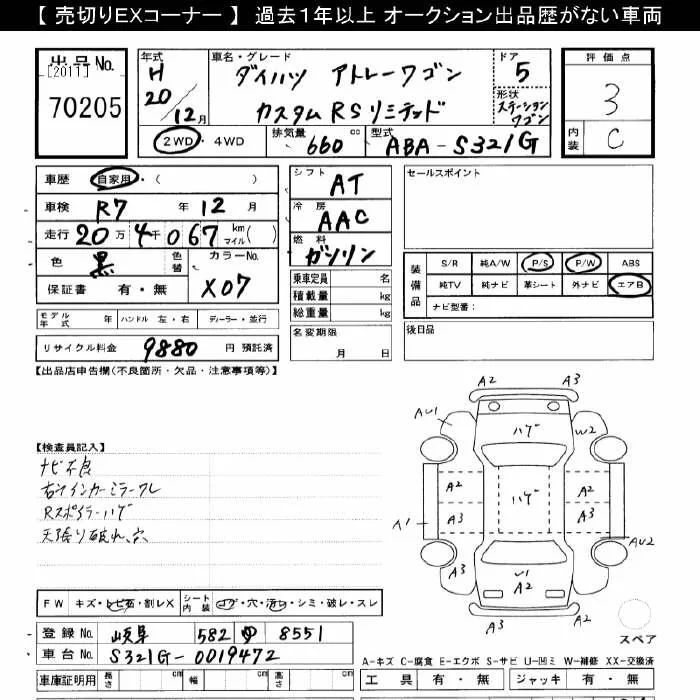 【 売切りEXコーナー 】 過去１年以上 オークション出品歴がない車両
出 品 No.
[2011]
70205
年式 H 20/12月
車名・グレード
ダイハツ アトレーワゴン
カスタムRSリミテッド
ドア 5
形状 ステーションワゴン
評 価 点
3
内装 C
2WD ・ 4WD
排気量 660 cc
型式 ABA-S321G
車歴 自家用・( )
車検 R7 年 12 月
走行 20万 4千 067 km マイル( )
色 黒 色替
カラーNo. X07
保証書 有・無
シフト AT
冷房 AAC
燃料 ガソリン
乗車定員 名
積載量 kg
総重量 kg
名変期限 月 日
セールスポイント
装備品
S/R 純A/W P/S P/W ABS
純TV 純ナビ 革シート 外ナビ エアB
ナビ型番：
後日品
モデル年式 年 ハンドル 左・右 ディーラー・並行
リサイクル料金 9880 円 預託済
【出品店申告欄(不良箇所・欠品・注意事項等)】
【検査員記入】
ナビ不良
右ウインカーミラークレ
Rスポイラーハゲ
天張り破れ、穴
A2 A3
AU1 ハゲ W2
A2 ハゲ A2
A3 A3
A1 AU2
A3 U1 A2 A3
A3 A2
スペア
FW キズ・トビ石・割レX
シート内装 コゲ・穴・汚レ・シミ・破レ・スレ
登録 No. 岐阜 582 ゆ 8551
車台 No. S321G-0019472
車庫証明用 長さ cm 幅 cm 高さ cm
A-キズ C-腐食 E-エクボ S-サビ U-凹ミ W-補修 XX-交換済
工 具 有・無 ジャッキ 有・無